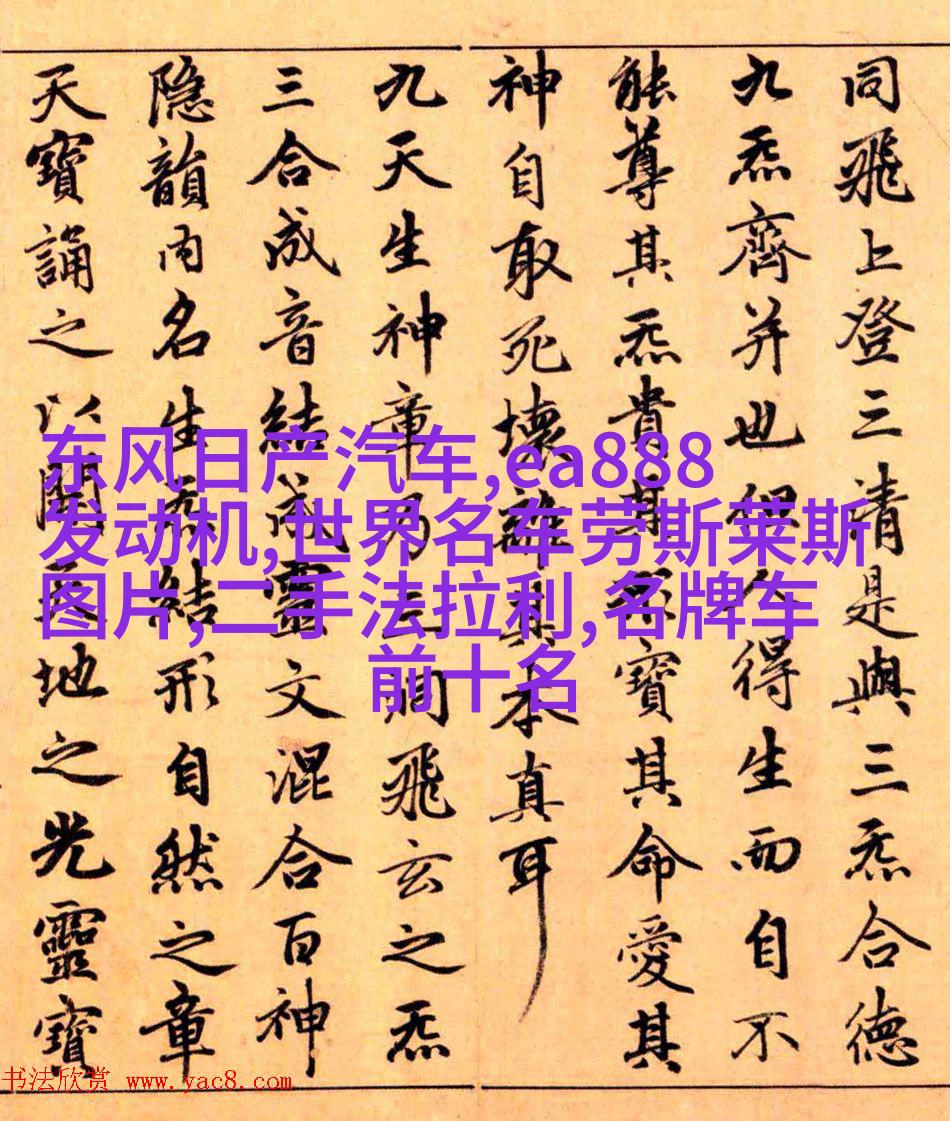 同飛上登三清是與三炁合德
九炁齊并也但人得生而自不
能尊其炁貴其形寶其命愛其
神自取死壞離其本真耳
九天生神章乃三洞飛玄之炁
三合成音結成靈文混合百神
隐韻内名生炁結形自然之章
天寶誦之以開天地之光靈寶
东风日产汽车,ea888
发动机,世界名车劳斯莱斯
图片,二手法拉利,名牌车
前十名
书法欣赏 www.yac8.com